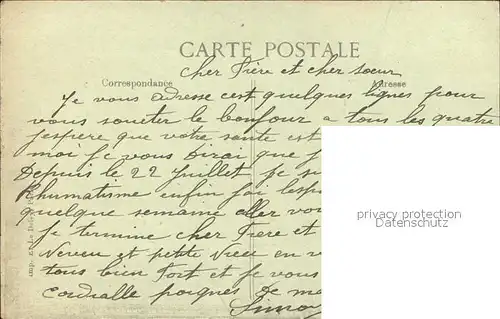 CARTE POSTALE
Correspondance
Adresse
cher Frère et cher soeur
Je vous adresse cest quelques lignes pour
vous soueter le bonjour a tous les quatre
jespère que votre sante est
moi je vous dirai que j
Depuis le 22 Juillet je su
Rhumatisme enfin jai lesp
quelque semaine aller vou
je termine cher Frere et
Neveu et petite Niece en v
tous bien fort et je vous
cordialle poignes de ma
Simo
privacy protection
www.oldthing.de